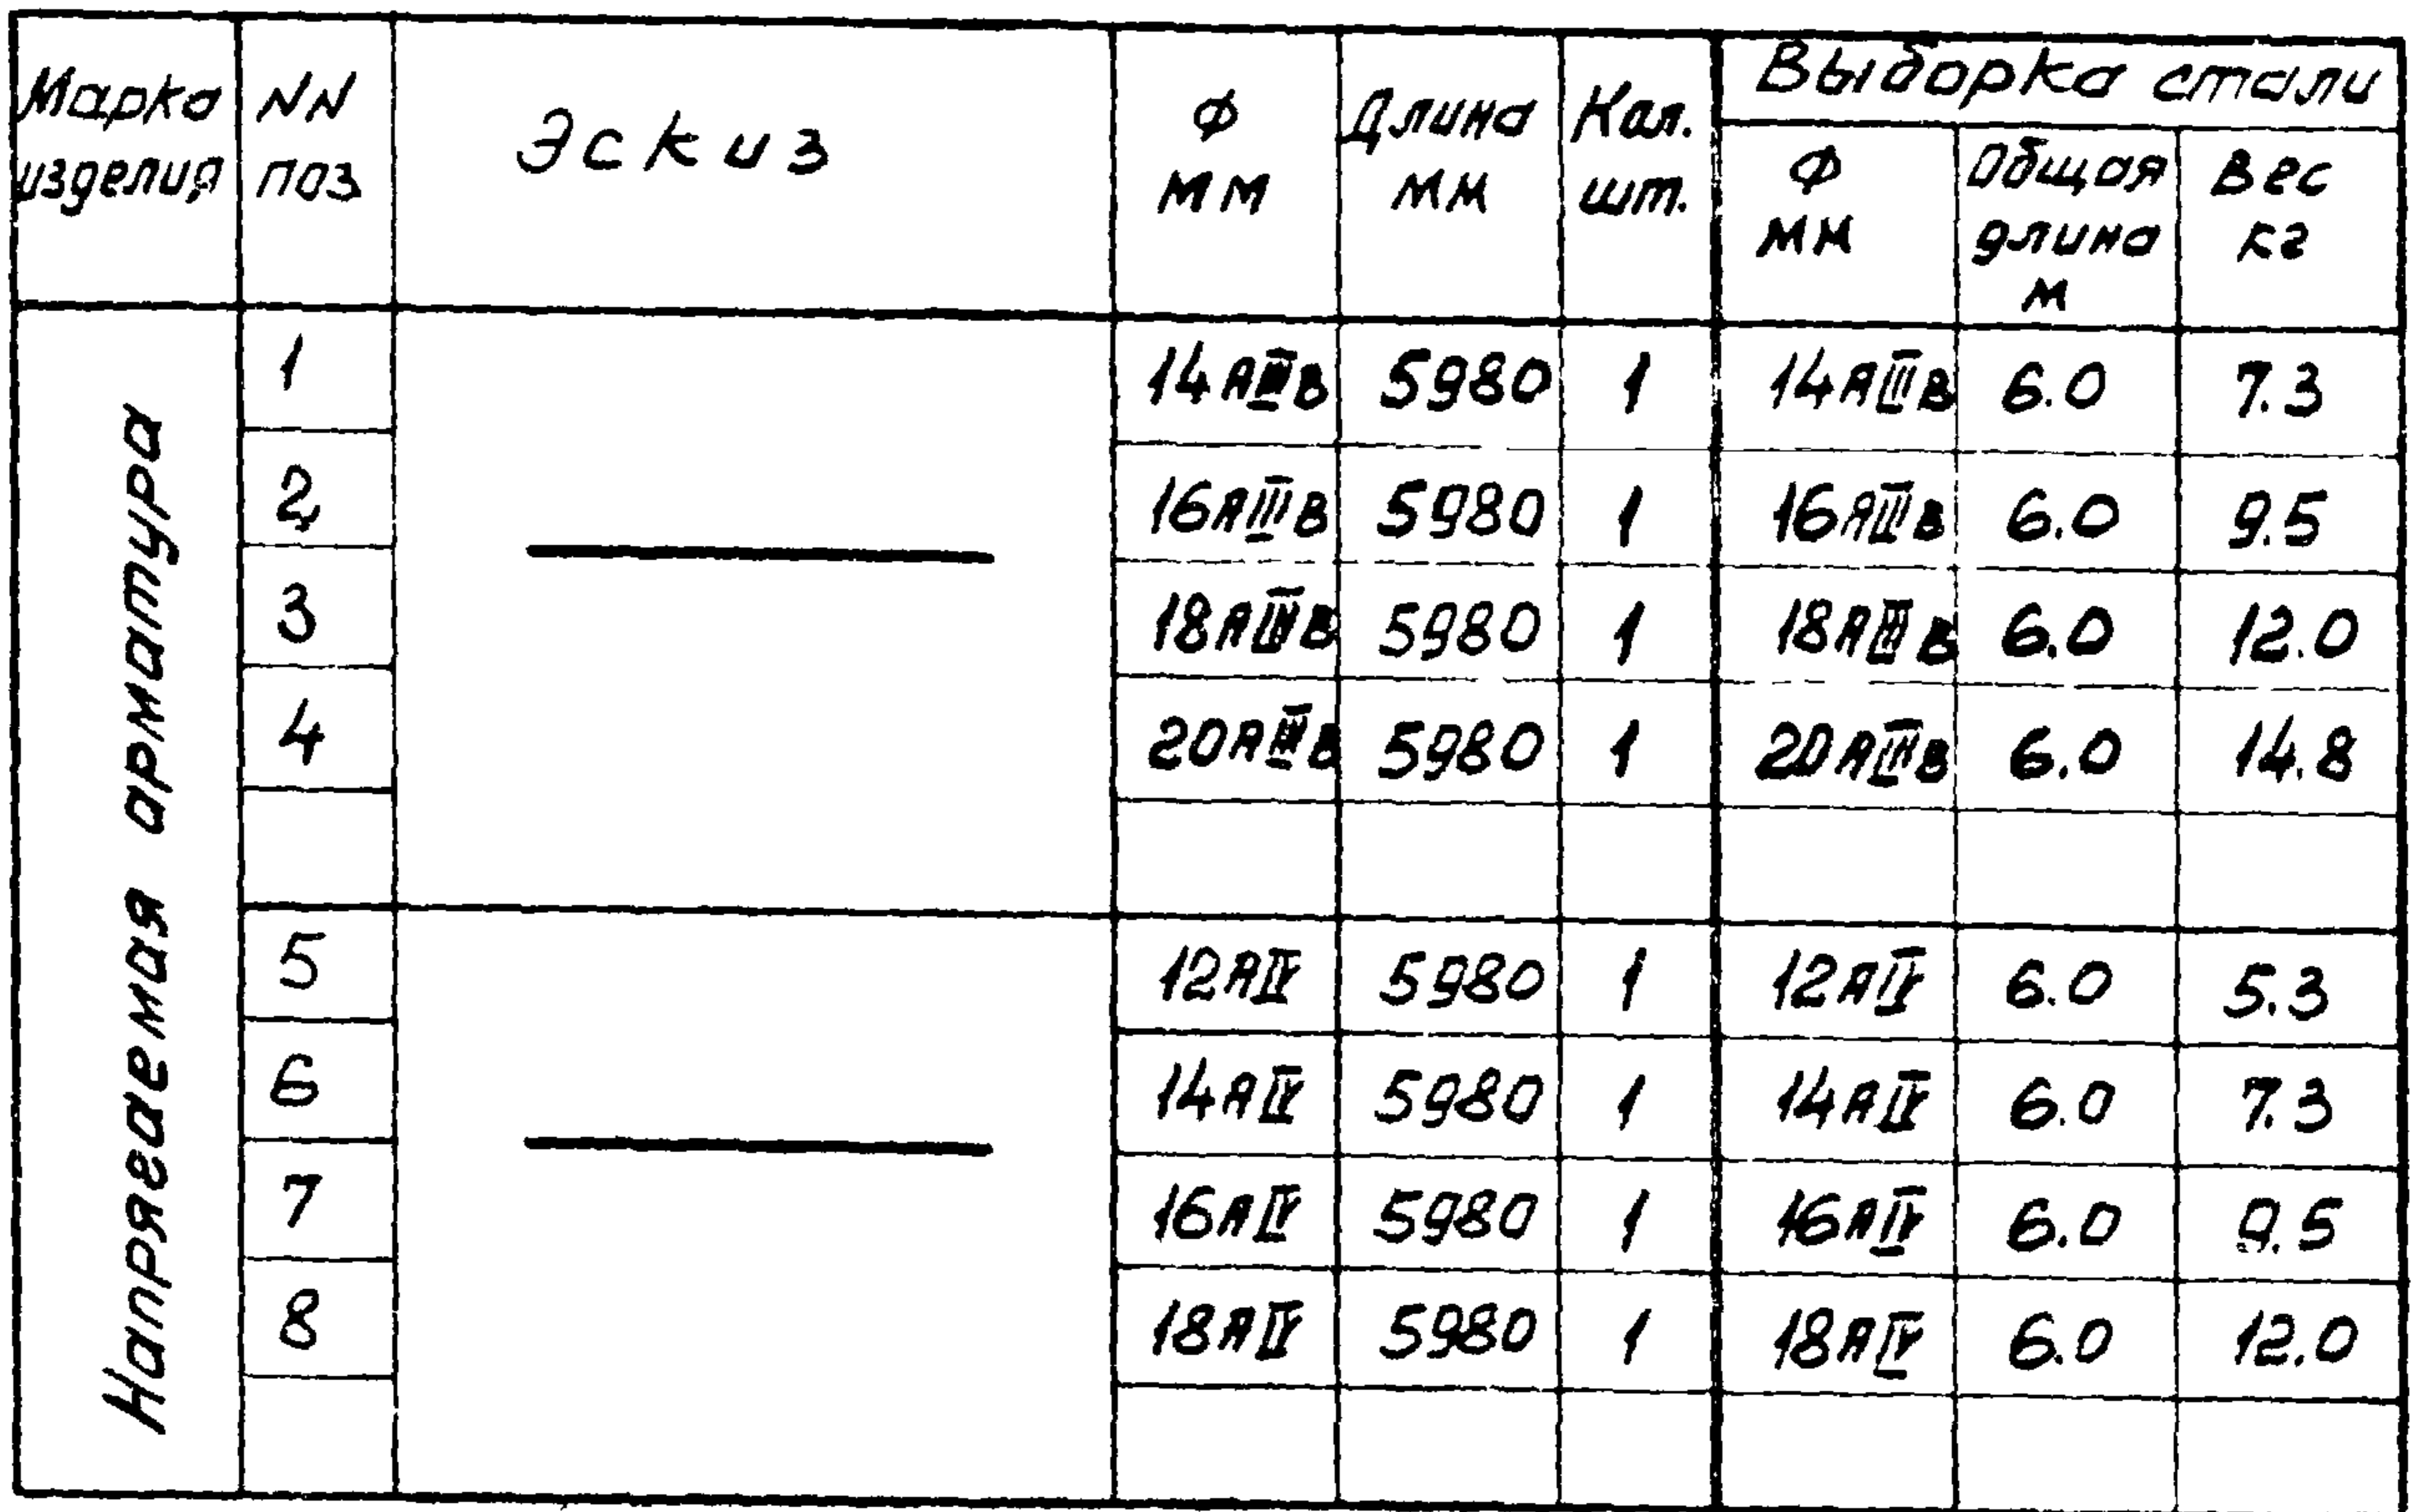 Марка изделия NN поз Эскиз Ф мм Длина мм Кол. шт. Выборка стали
Ф мм Общая длина м Вес кг
Напрягаемая арматура
1 14АIIIв 5980 1 14АIIIв 6.0 7.3
2 16АIIIв 5980 1 16АIIIв 6.0 9.5
3 18АIIIв 5980 1 18АIIIв 6.0 12.0
4 20АIIIв 5980 1 20АIIIв 6.0 14.8
5 12АIV 5980 1 12АIV 6.0 5.3
6 14АIV 5980 1 14АIV 6.0 7.3
7 16АIV 5980 1 16АIV 6.0 9.5
8 18АIV 5980 1 18АIV 6.0 12.0